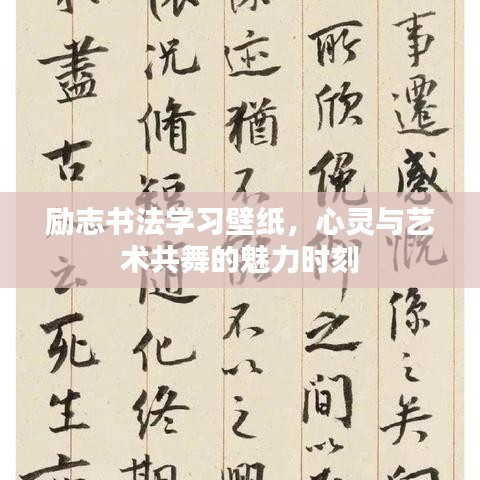 事遷感慨係之矣向
所欣俛仰之間以
迹猶不能不以之興
況脩短隨化終期
盡古人云死生亦
励志书法学习壁纸，心灵与艺
术共舞的魅力时刻